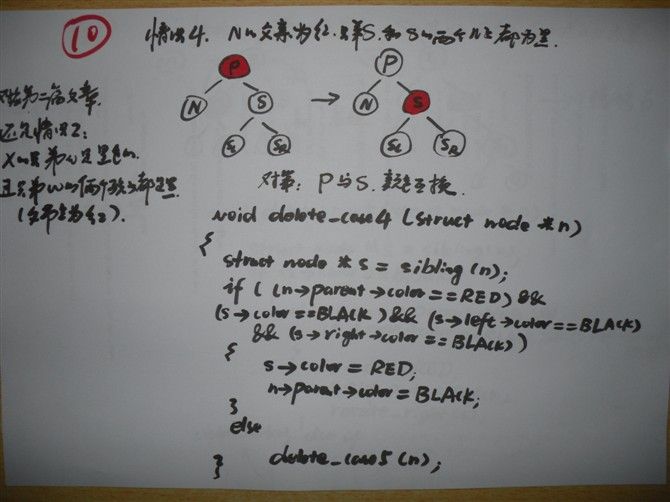 10
情况4. N的父亲为红. 兄弟S. 和S的两个儿子都为黑.
P P
N S → N S
SL SR SL SR
对应第二篇文章.
还是情况2:
X的兄弟w是黑色的.
且兄弟w的两个孩子都是黑
(父节点为红).
对策: P与S. 颜色互换.
void delete_case4 (struct node *n)
{
struct node * s = sibling (n);
if ( (n->parent->color == RED) &&
(s->color == BLACK) && (s->left->color == BLACK)
&& (s->right->color == BLACK) )
{
s->color = RED;
n->parent->color = BLACK;
}
else
delete_case5 (n);
}